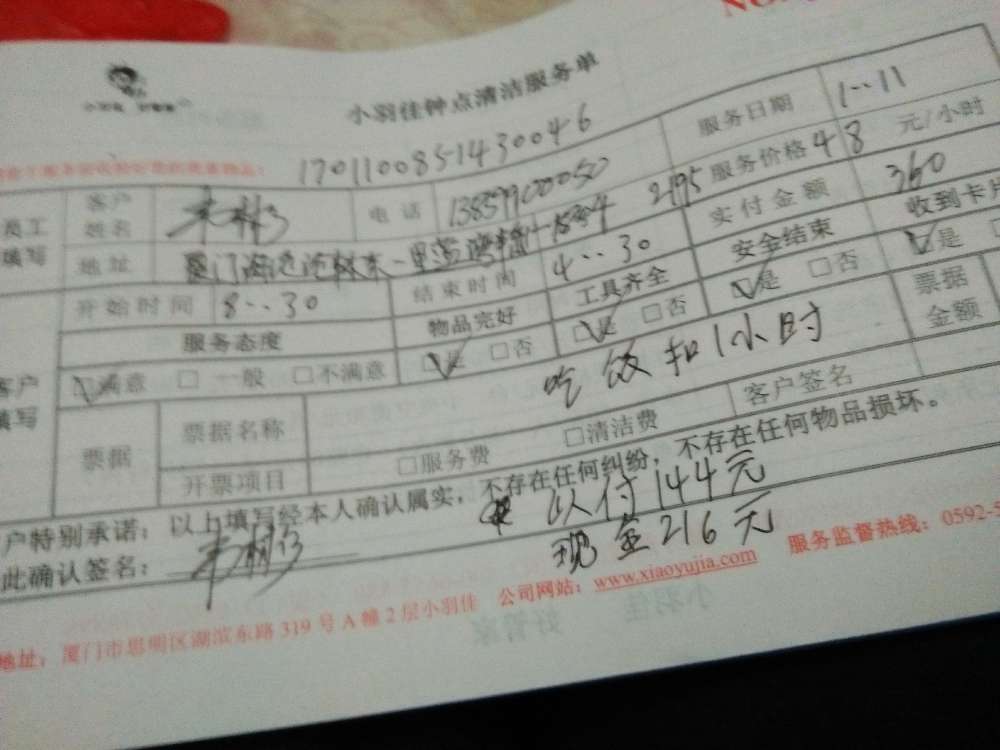 小羽佳钟点清洁服务单
1701100851430046
服务日期 1..11
员工填写 客户姓名 电话 服务价格 48 元/小时
地址 厦门 实付金额 360
开始时间 8..30 结束时间 4..30 安全结束 收到卡片
服务态度 物品完好 工具齐全 是 否 是
客户填写 满意 一般 不满意 是 否 是 否 票据金额
吃饭扣1小时
票据 票据名称 客户签名
开票项目 服务费 清洁费
户特别承诺:以上填写经本人确认属实,不存在任何纠纷,不存在任何物品损坏。
以付144元
此确认签名:
现金216元
地址:厦门市思明区湖滨东路319号A幢2层小羽佳 公司网站:www.xiaoyujia.com 服务监督热线:0592-5